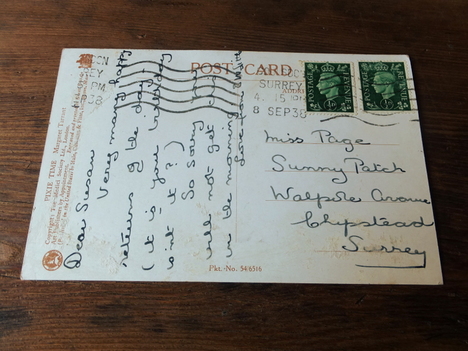 POST CARD
SURREY
4.15 PM
8 SEP 38
POSTAGE
POSTAGE
Dear Susan
Very many happy
returns of the day.
(it is your birthday
isn't it?)
So sorry this
will not get
in the morning
Love from
Miss Page
Sunny Patch
Walpole Avenue
Chipstead
Surrey
PIXIE TIME Margaret Tarrant
Pkt.-No. 54/6516